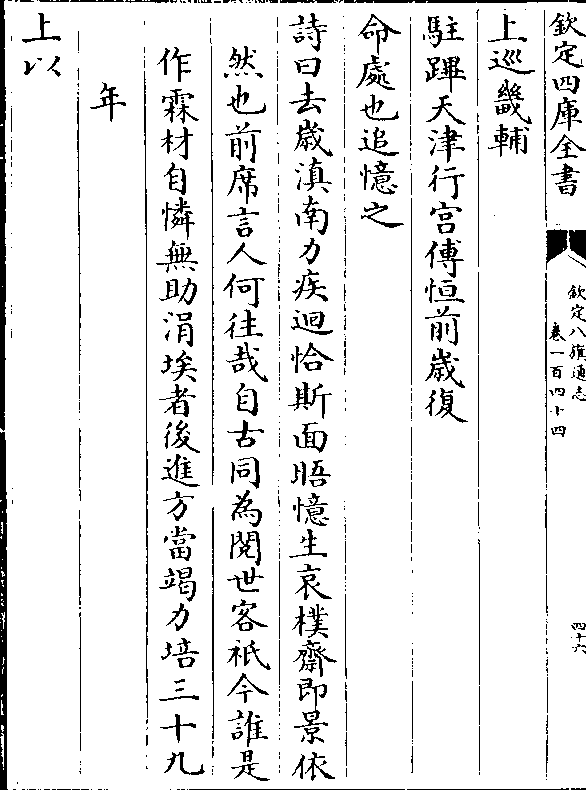 欽定四庫全書
欽定八旗通志
卷一百四十四
四十六
上巡畿輔
駐蹕天津行宫傅恒前歲復
命處也追憶之
詩曰去歲滇南力疾迴恰斯面晤憶生哀樸齋即景依
然也前席言人何往哉自古同為閱世客祇今誰是
作霖材自憐無助涓埃者後進方當竭力培三十九
年
上以